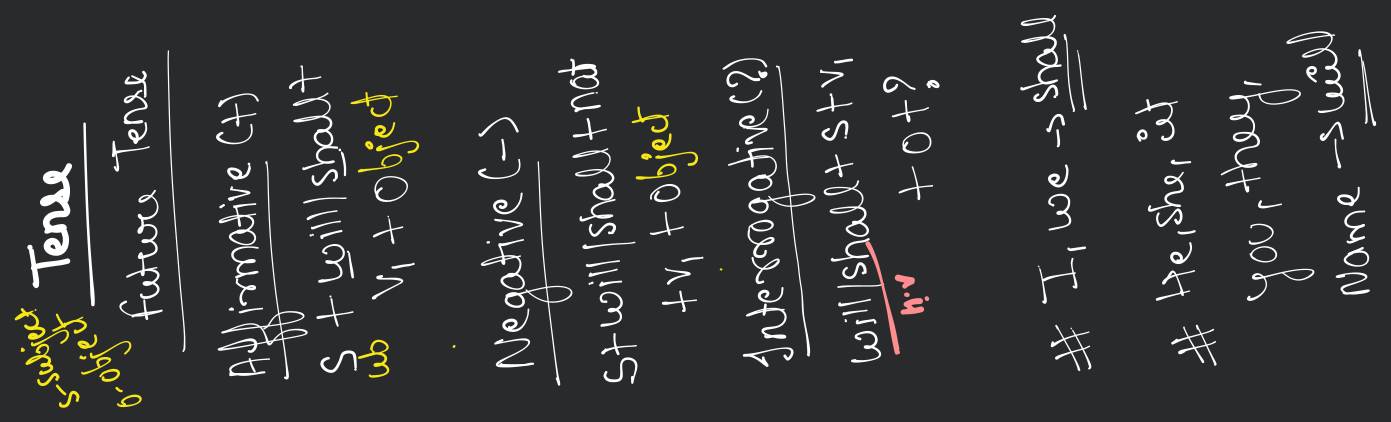 Tense
s-subject
o-object
future Tense
Affirmative (+)
S + will/shall +
ub
V1 + Object
Negative (-)
S + will/shall + not
+ V1 + Object
Interrogative (?)
will/shall + S + V1
h.v
+ O + ?
# I, we → shall
# He, she, it
you, they,
Name → will